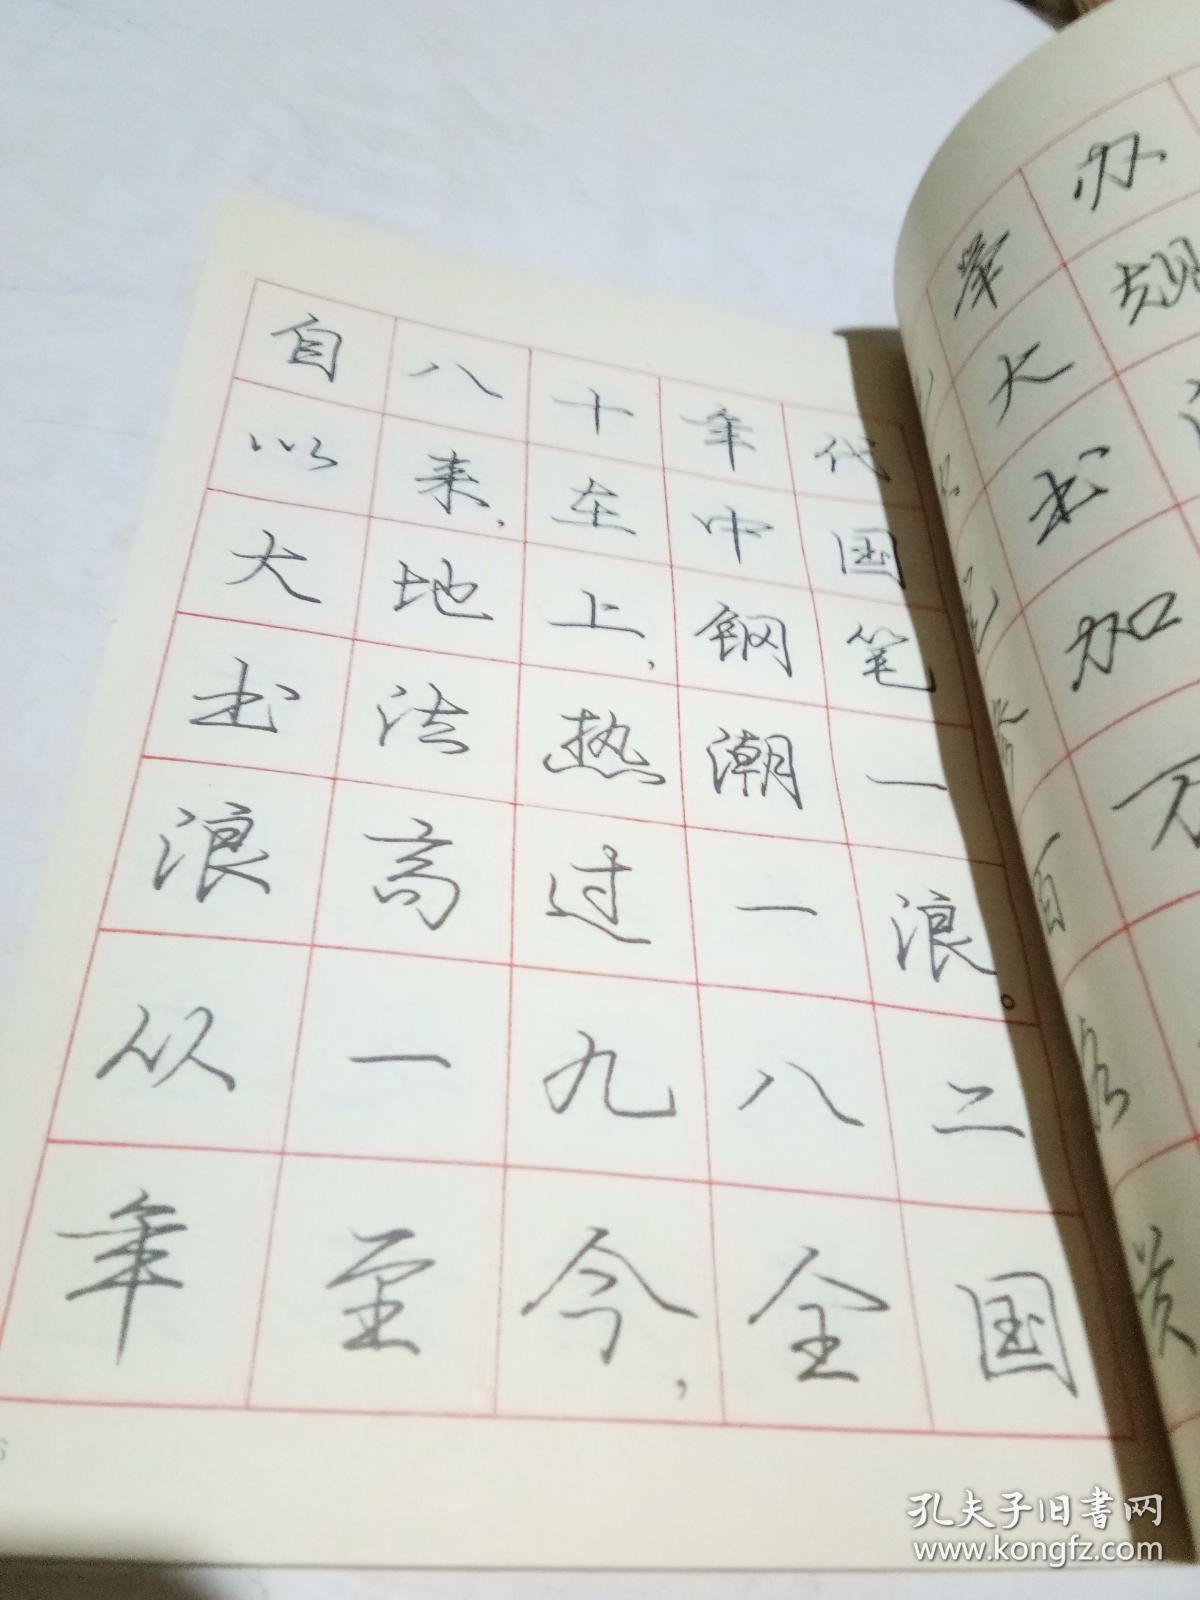 自八十年代
以来，在中国
大地上，钢笔
书法热潮一
浪高过一浪。
从一九八二
年至今，全国
办
举 规
大
书
加
万
6
孔夫子旧书网
www.kongfz.com